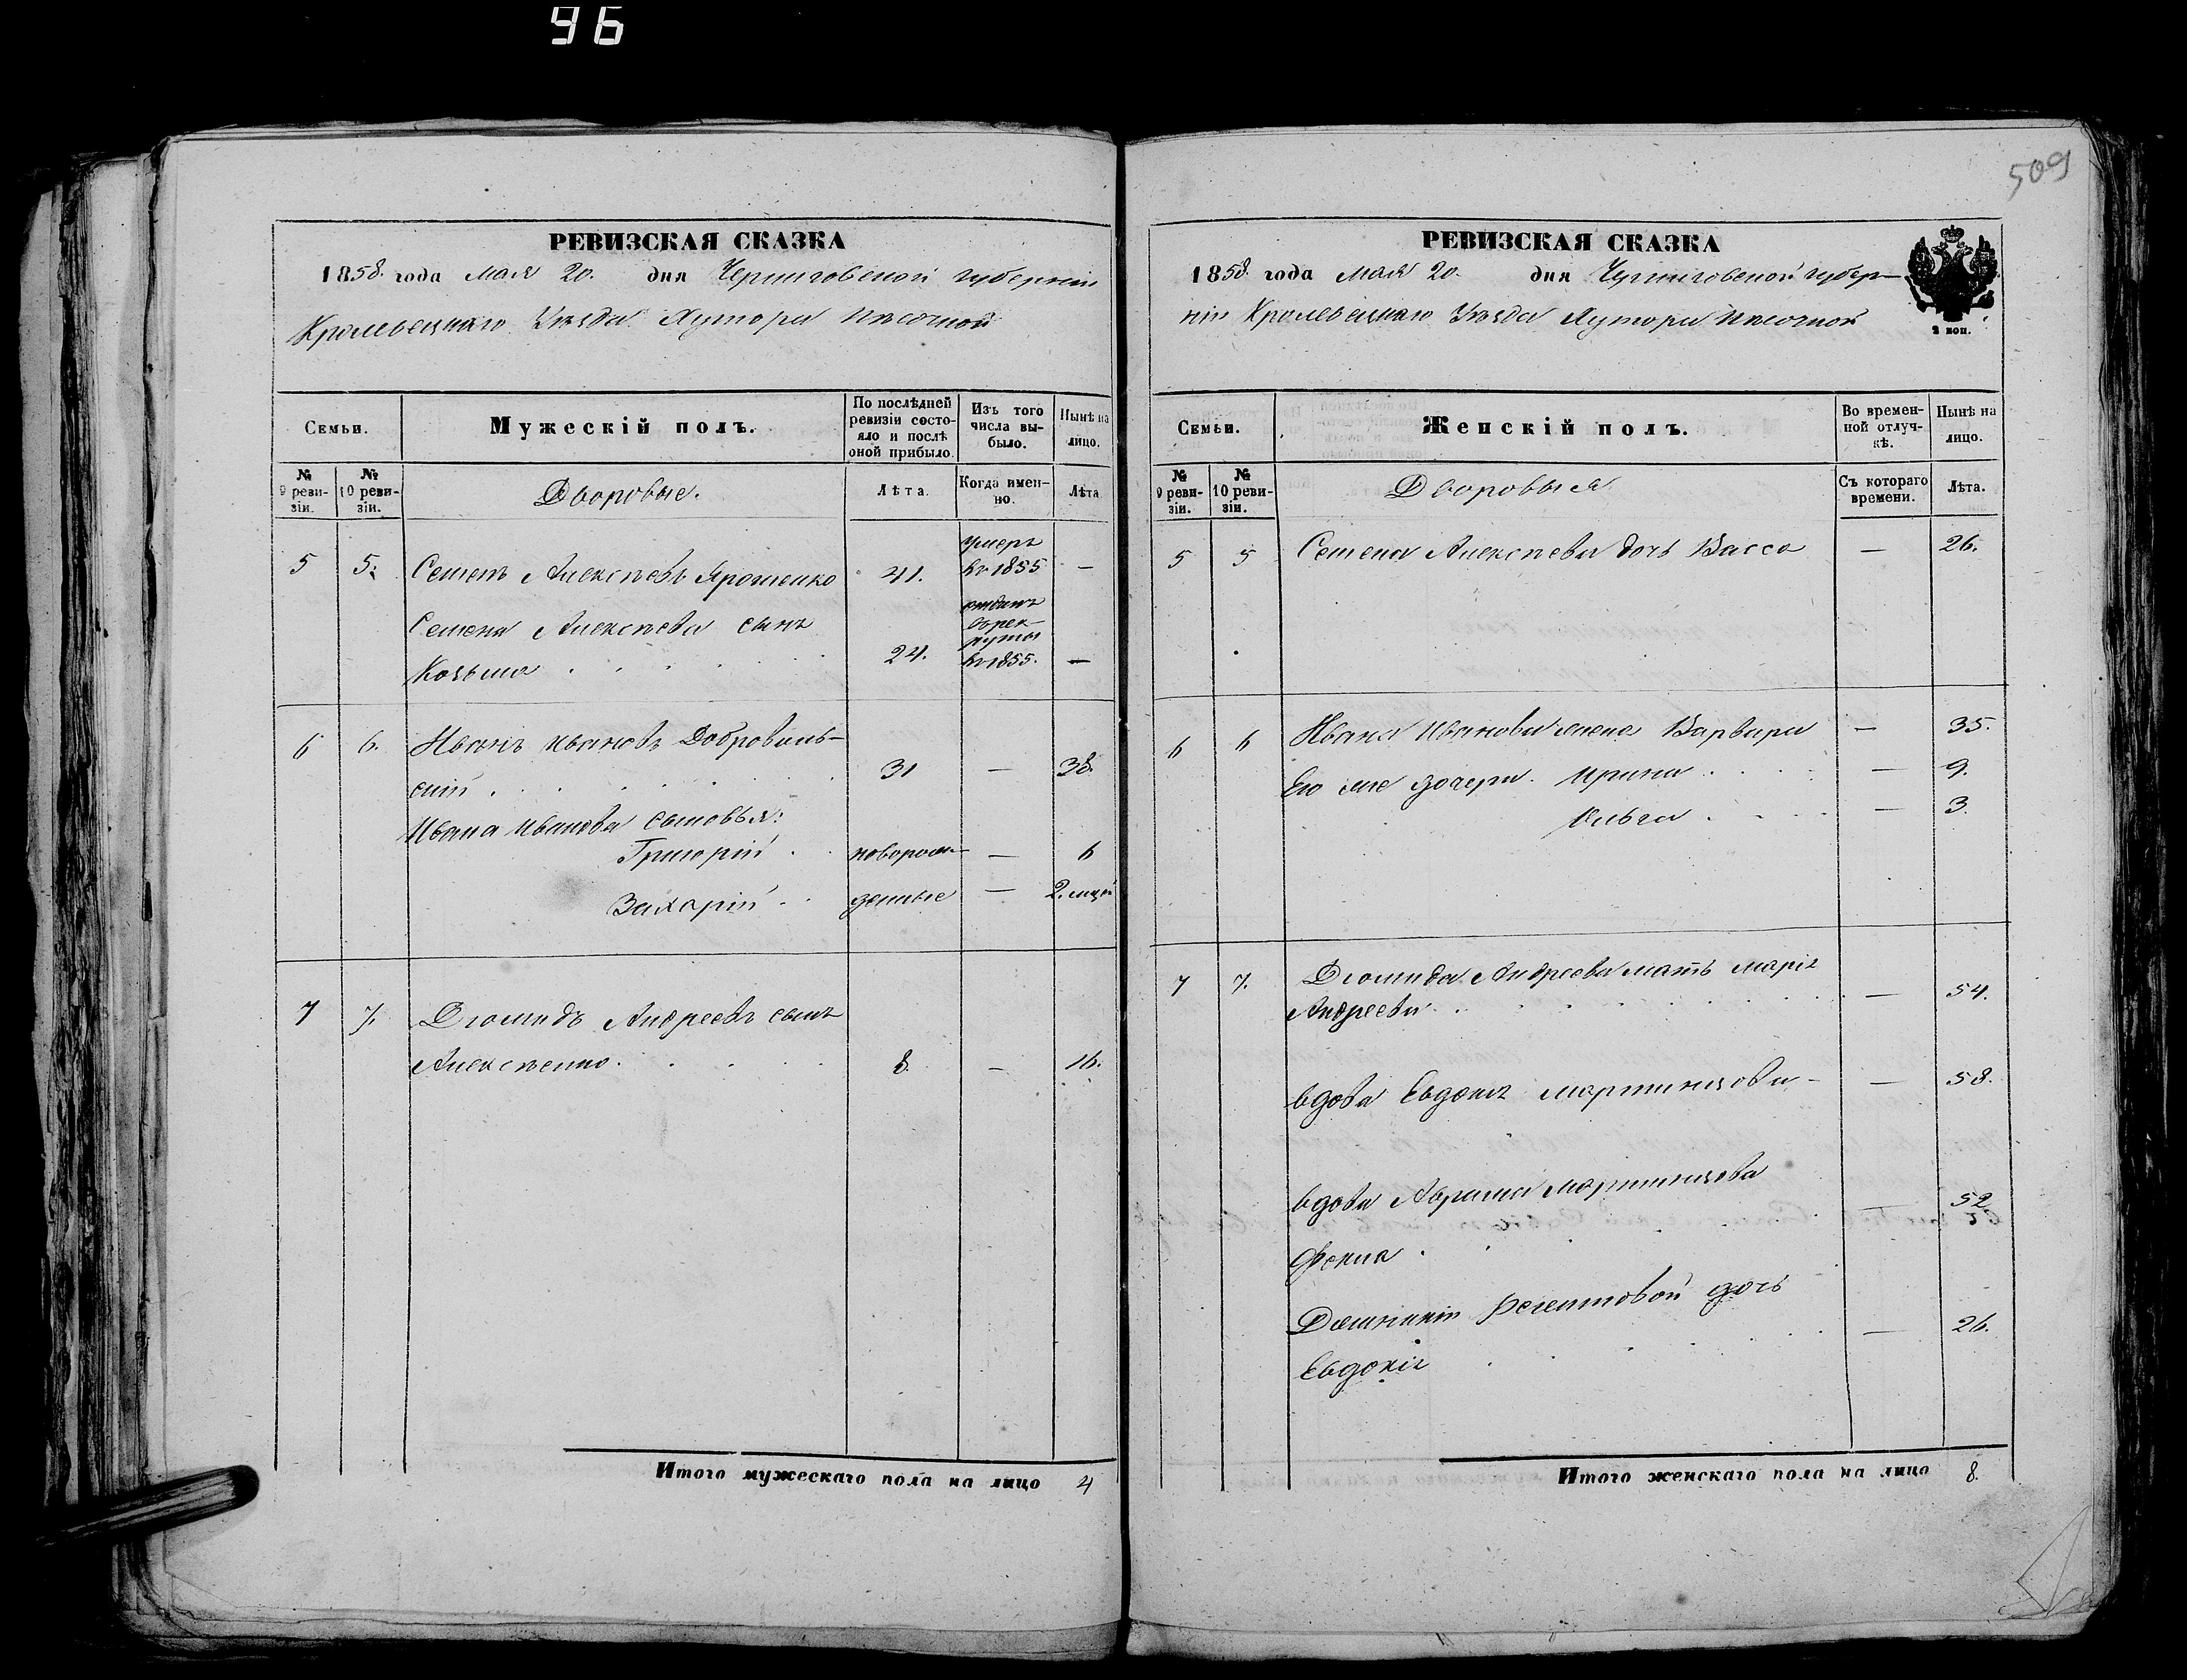 96
509
РЕВИЗСКАЯ СКАЗКА
1858. года Мая 20. дня Черниговской губернии
Кролевецкаго Уѣзда Хутора Пѣсочной
Семьи.
Мужескій полъ.
По послѣдней ревизіи состояло и послѣ оной прибыло.
Изъ того числа выбыло.
Нынѣ на лицо.
№ 9 ревизіи.
№ 10 ревизіи.
Дворовые.
Лѣта.
Когда именно.
Лѣта
умеръ
5 5. Семенъ Алексѣевъ Ярошенко 41. въ 1855 —
отданъ
Семена Алексѣева сынъ
въ рек-
руты
Козьма 24. въ 1855. —
6 6. Иванъ Ивановъ Добровиль-
скій 31 — 38.
Ивана Иванова сыновья:
Григорій новорож- — 6
Захарій денные — 2. мцѣ
7 7. Діомидъ Андреевъ сынъ
Алексѣенко 8. — 16.
Итого мужескаго пола на лицо 4
РЕВИЗСКАЯ СКАЗКА
1858 года Мая 20. дня Черниговской губер-
ніи Кролевецкаго Уѣзда Хутора Пѣсочной
2 коп.
Семьи.
Женскій полъ.
Во временной отлучкѣ.
Нынѣ на лицо.
№ 9 ревизіи.
№ 10 ревизіи.
Дворовыя
Съ котораго времени.
Лѣта.
5 5 Семена Алексѣева дочь Васса — 26.
6 6 Ивана Иванова жена Варвара — 35.
Его же дочери Ирина — 9.
Ольга — 3.
7 7. Діомида Андреева мать Марія
Андреева — 54.
вдова Евдокія Мартинцова — 58.
вдова Абрама Мартинцова
— 52
Фекла
дочь
Евдокія — 26.
Итого женскаго пола на лицо 8.